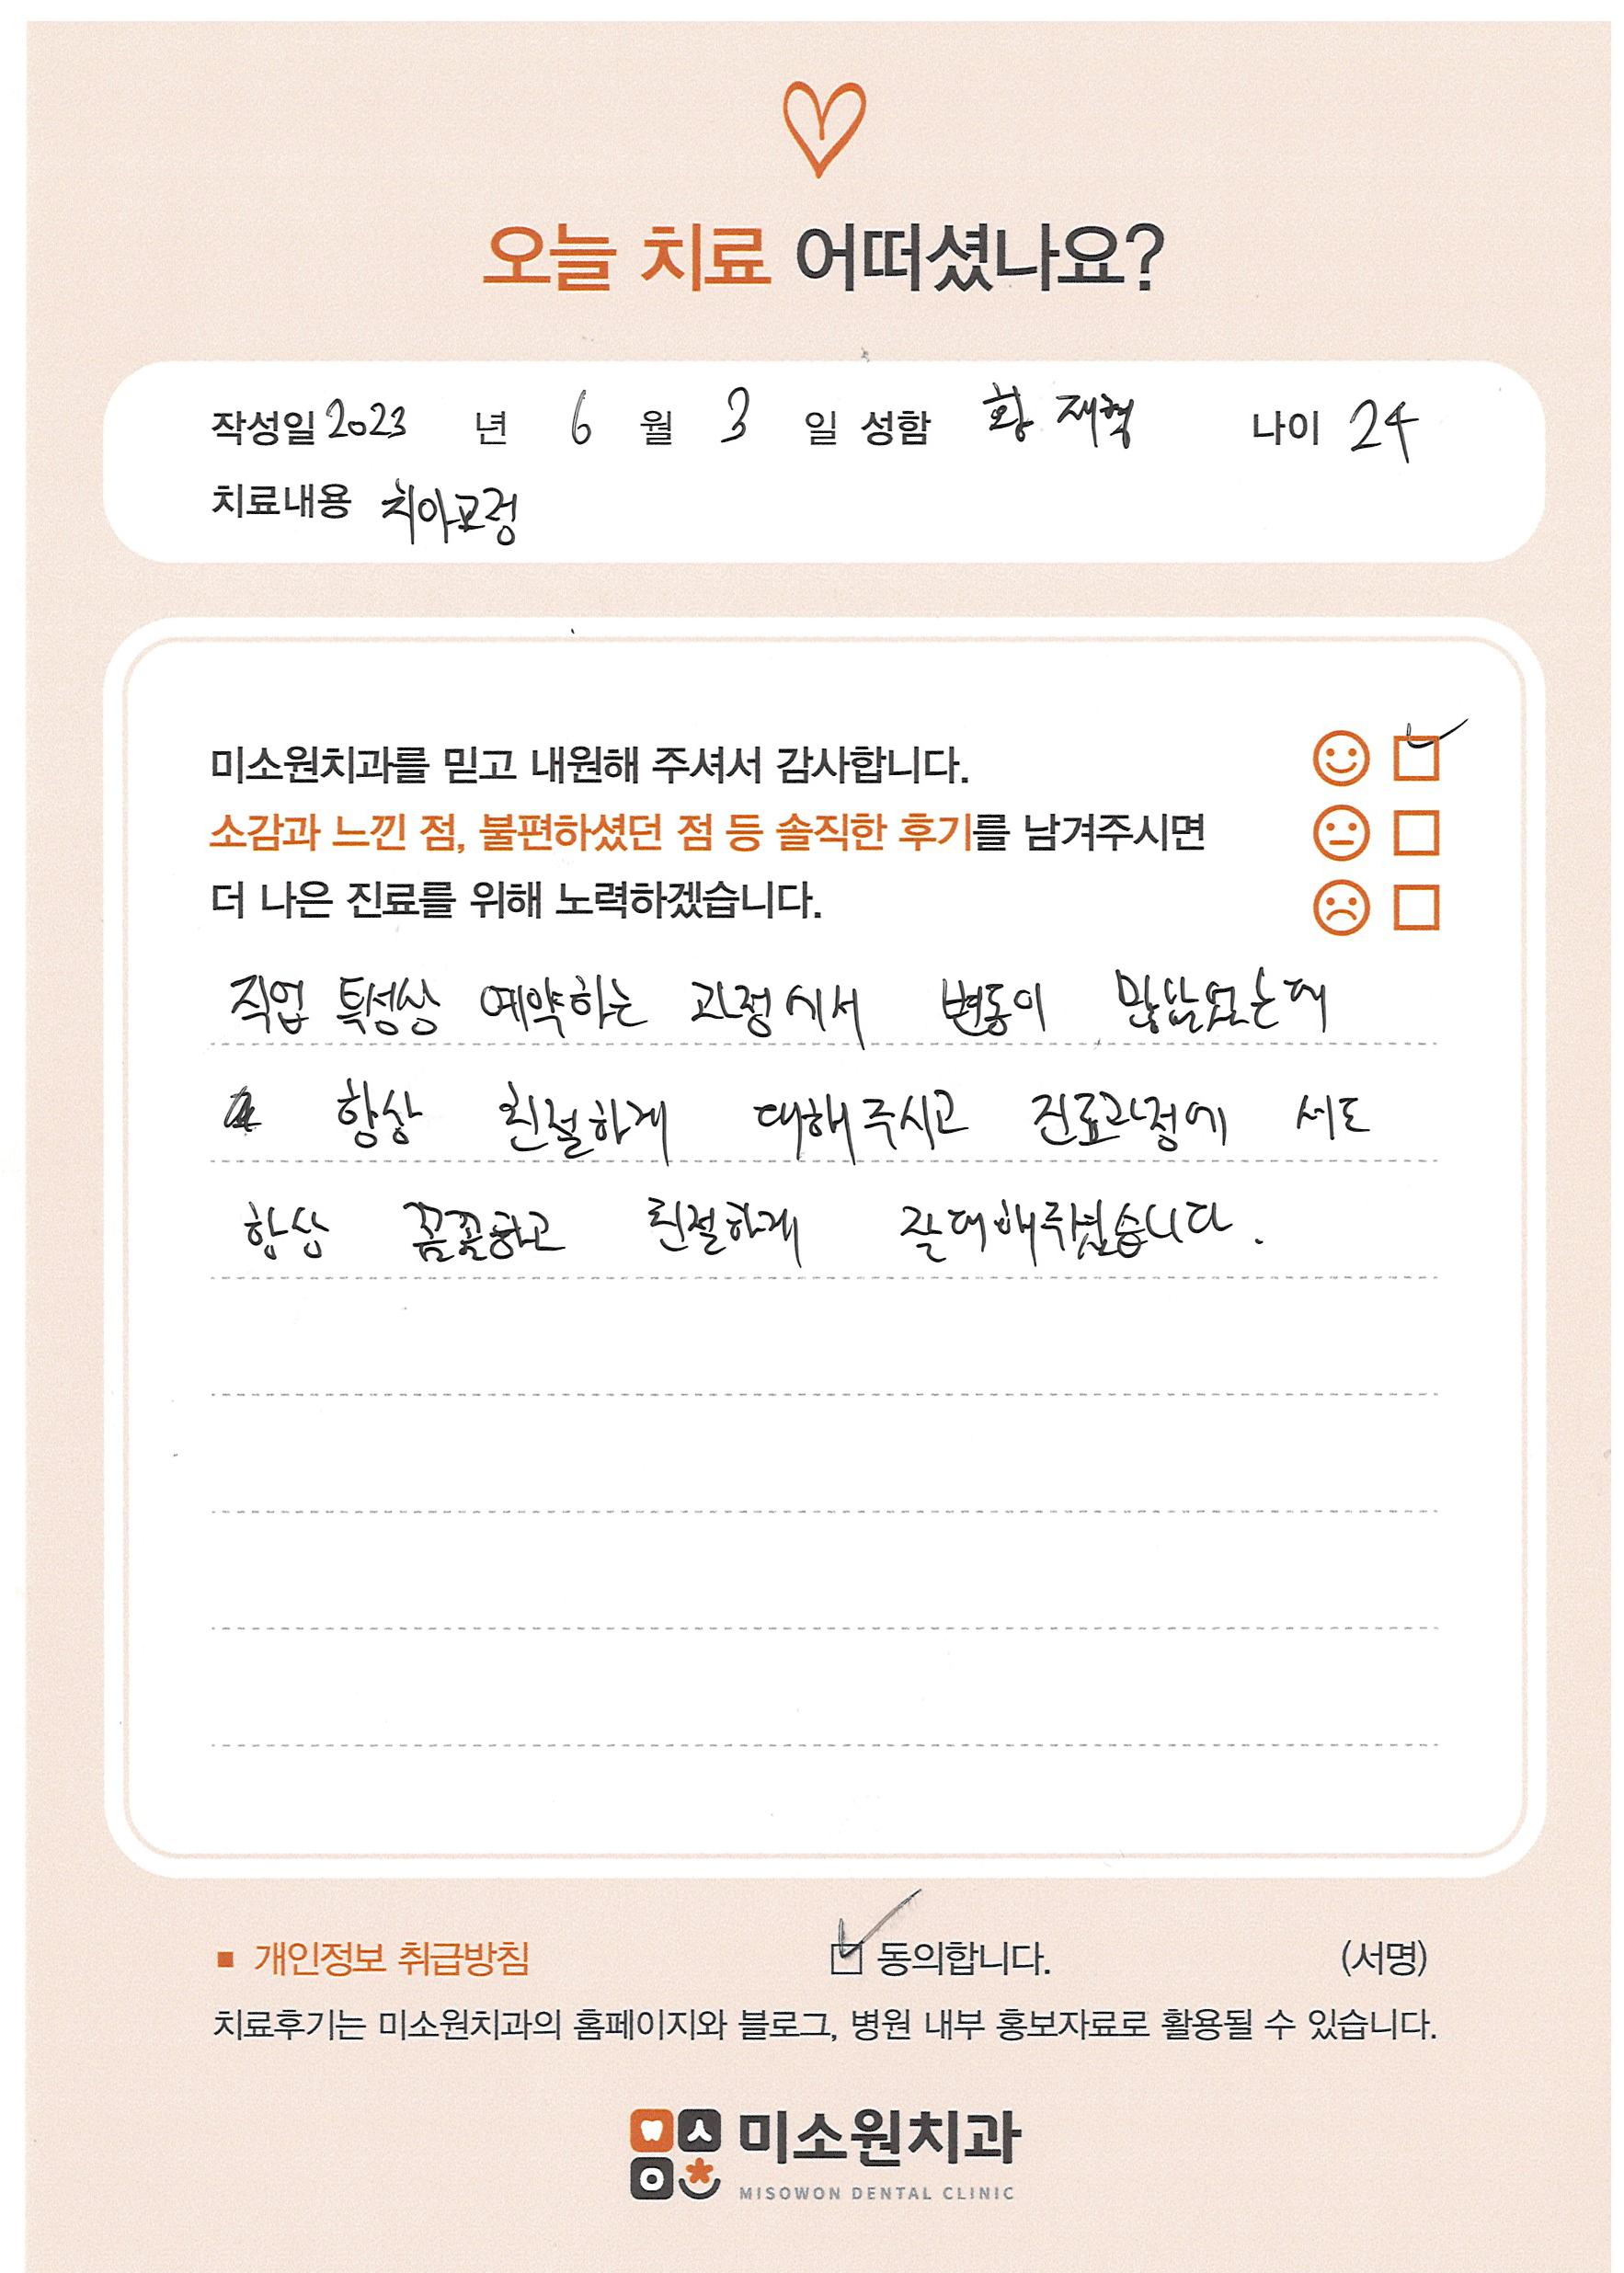 오늘 치료 어떠셨나요?
작성일 2023 년 6 월 3 일 성함 황재혁 나이 24
치료내용 치아교정
미소원치과를 믿고 내원해 주셔서 감사합니다.
소감과 느낀 점, 불편하셨던 점 등 솔직한 후기를 남겨주시면
더 나은 진료를 위해 노력하겠습니다.
직업 특성상 예약하는 과정에서 변동이
항상 친절하게 대해주시고 진료과정에 서도
항상 꼼꼼하고 친절하게 잘대해주셨습니다.
■ 개인정보 취급방침 동의합니다. (서명)
치료후기는 미소원치과의 홈페이지와 블로그, 병원 내부 홍보자료로 활용될 수 있습니다.
미소원치과
MISOWON DENTAL CLINIC